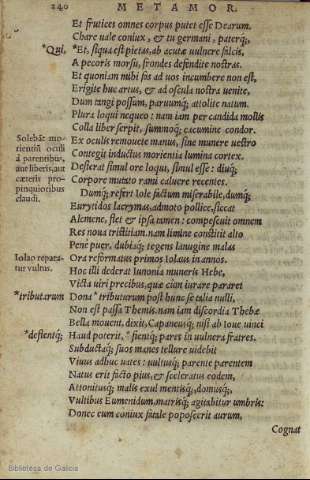 240 METAMOR.
Et frutices omnes corpus putet esse Dearum.
Chare uale coniux, & tu germani, paterq;,
*Qui, *Et, siqua est pietas, ab acutæ uulnere falcis,
A pecoris morsu, frondes defendite nostras.
Et quoniam mihi fas ad uos incumbere non est,
Erigite huc artus, & ad oscula nostra uenite,
Dum tangi possum, paruumq; attolite natum.
Plura loqui nequeo: nam iam per candida mollis
Colla liber serpit, summoq; cacumine condor.
Solebāt mo
rientiū oculi
à parentibus,
aut liberis, aut
cæteris pro-
pinquioribus
claudi.
Ex oculis remouete manus, sine munere uestro
Contegit inductus morientia lumina cortex.
Desierat simul ore loqui, simul esse: diuq;
Corpore mutato rami caluere recentes.
Dumq; refert Iole factum miserabile, dumq;
Eurytidos lacrymas, admoto pollice, siccat
Alcmene, flet & ipsa tamen: compescuit omnem
Res noua tristitiam. nam limine constitit alto
Penè puer, dubiaq; tegens lanugine malas
Iolao repara-
tur vultus.
Ora reformatus primos Iolaus in annos.
Hoc illi dederat Iunonia muneris Hebe,
Victa uiri precibus, quæ cum iurare pararet
*tributarum Dona *tributarum post hunc se talia nulli,
Non est passa Themis. nam iam discordia Thebæ
Bella mouent, dixit, Capaneusq; nisi ab Ioue uinci
*desientq; Haud poterit, *fientq; pares in uulnera fratres.
Subductaq; suos manes tellure uidebit
Viuus adhuc uates: ultusq; parente parentem
Natus erit facto pius, & sceleratus eodem,
Attonitusq; malis exul mentisq;, domusq;,
Vultibus Eumenidum, matrisq; agitabitur umbris:
Donec eum coniux fatale poposcerit aurum,
Cognat
Biblioteca de Galicia